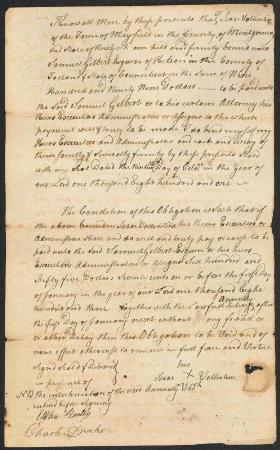 Know all Men by these presents that I Isac Vollintin
of the Town of Mayfield in the County of Montgomery
and State of New york am held and firmly bound unto
Samuel Gilbert Esquire of Hebron in the County of
Tolland & State of Connecticut in the Sum of Nine
Hundred and Ninety Nine Dollars to be paid unto
the said Samuel Gilbert or to his certain Attorney his
Heirs Executors Administrators or Assigns to the which
payment well & truly to be made I do bind my self my
Heirs Executors and Administrators and each and every of
them Jointly & Severally firmly by these presents Sealed
with my Seal Dated the Day of in the year of
our Lord one thousand Eight hundred and one
The Condition of this Obligation is Such that if
the above bounden Isaac Vollintine his Heirs Executors or
Administrators Shall and do well and truly pay or cause to be
paid unto the said Samuel Gilbert Esquire or his heirs
Executors Administrators or Assigns Six hundred and
Fifty five Dollars Seventy cents on or before the first Day
of January in the year of our Lord one thousand Eight
Annually
hundred and three together with the Lawful Interest after
the first Day of January next without any fraud or
other Delay then this Obligation to be Void and of
none effect otherwise to remain in full force and Virtue
Signed Seald & Deliverd
in presence of
his
Isac X Vollintin
NB the interlineation of the word Annually
interlined before signing
Charls Drake